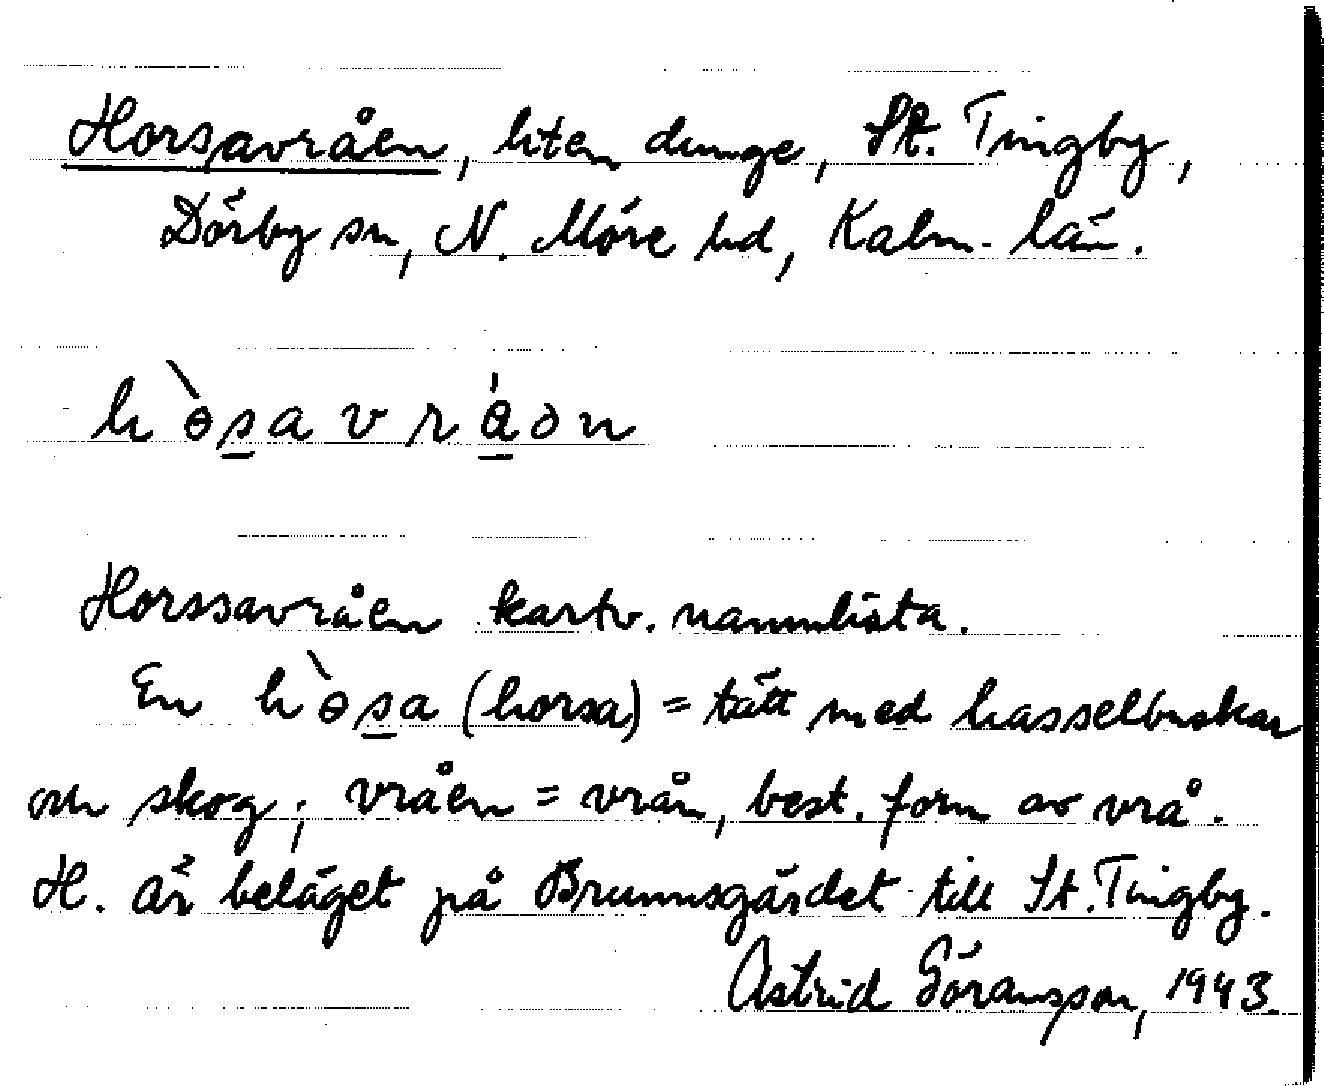 Horsavråen, liten dunge, St. Tingby,
Dörby sn, N. Möre hd, Kalm. län.
hɵ̀s̲avrå̲ən
Horssavråen kartv. namnlista.
En hɵ̀s̲a (horsa) = tätt med hasselbuskar
om skog; vråen = vrån, best. form av vrå.
H. är beläget på Brunnsgärdet till St. Tingby.
Astrid Göransson, 1943.